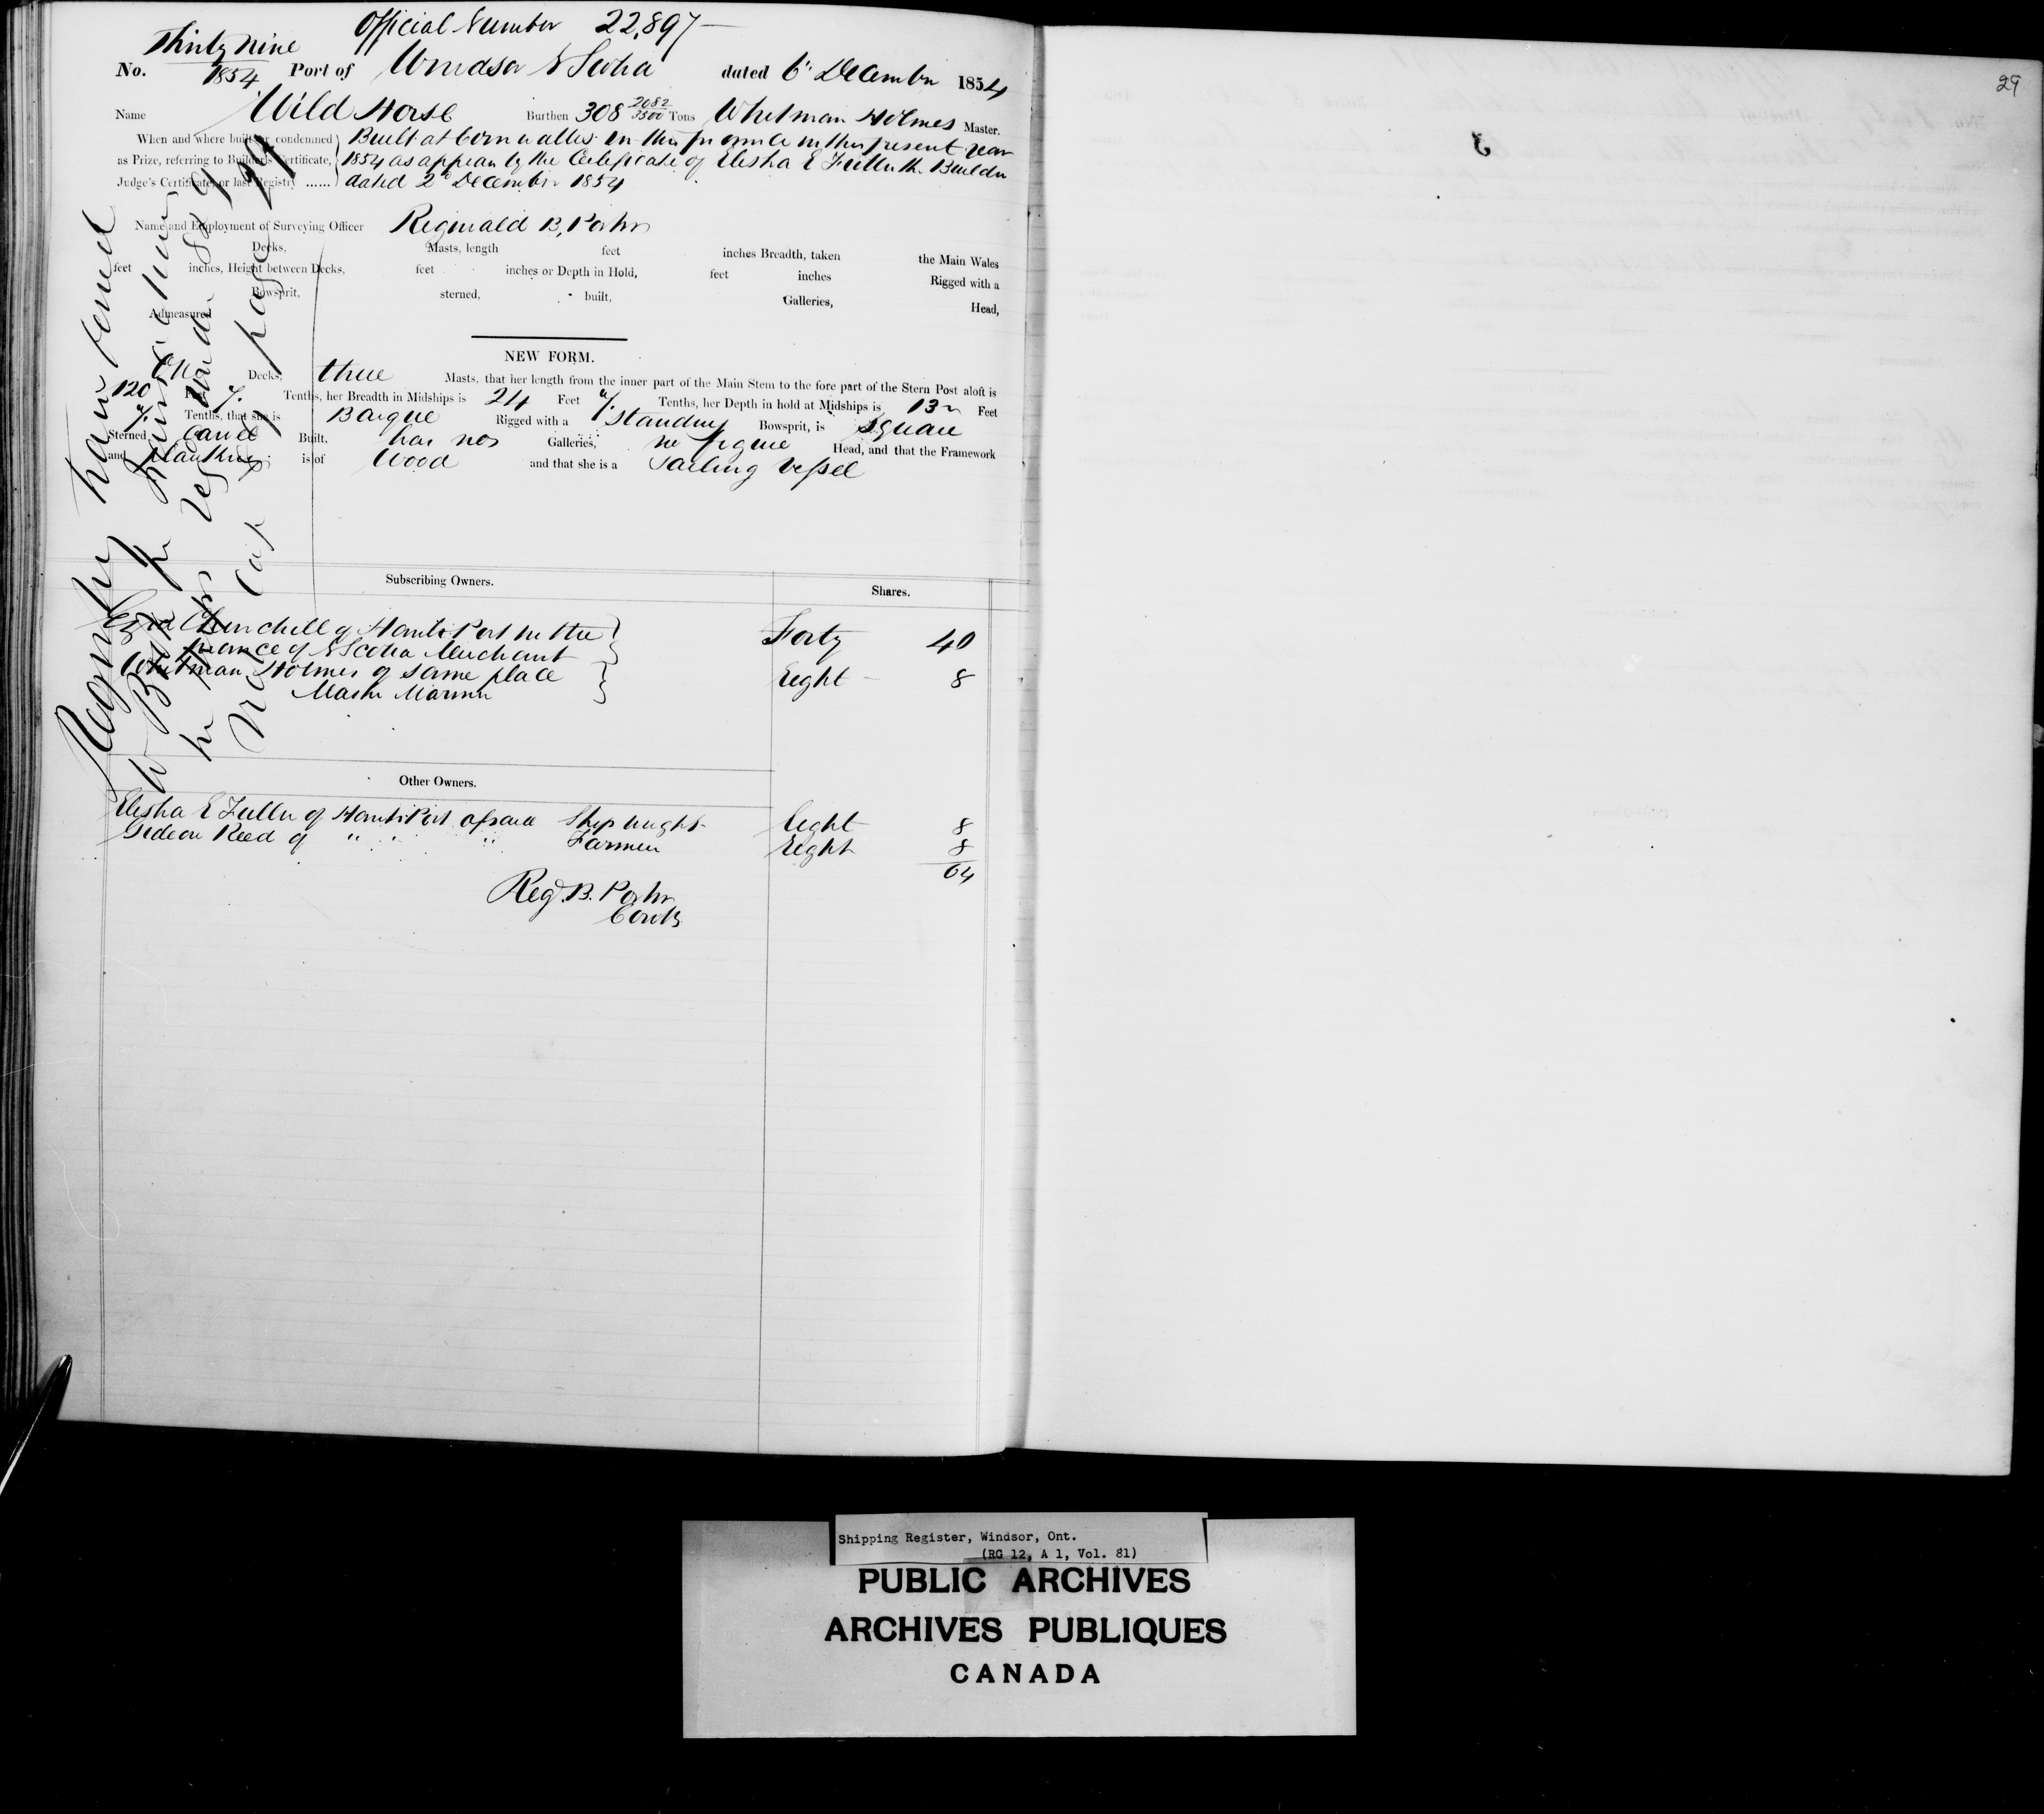 Official Number 22,897
Thirty Nine
No. 1854 Port of Windsor N Scotia dated 6th December 1854
Name Wild Horse Burthen 308 2082/3500 Tons Whitman Holmes Master.
When and where built or condemned Built at Cornwallis in this province in this present year
as Prize, referring to Builder's Certificate, 1854 as appears by the Certificate of Elisha E Fuller the Builder
Judge's Certificate, or last Registry ...... dated 2d December 1854
Name and Employment of Surveying Officer Reginald B. Porter
Decks, Masts, length feet inches Breadth, taken the Main Wales
feet inches, Height between Decks, feet inches or Depth in Hold, feet inches Rigged with a
Bowsprit, sterned, built, Galleries, Head,
Admeasured
NEW FORM.
One Decks, three Masts, that her length from the inner part of the Main Stem to the fore part of the Stern Post aloft is
120 Feet 7. Tenths, her Breadth in Midships is 24 Feet Tenths, her Depth in hold at Midships is 13 Feet
7. Tenths, that she is Barque Rigged with a Standing Bowsprit, is Square
Sterned, Carvel Built, has no Galleries, no figure Head, and that the Framework
and planking is of Wood and that she is a Sailing Vessel
Subscribing Owners. Shares.
Ezra Churchill of Hants Port in the Forty 40
Province of N Scotia Merchant
Whitman Holmes of same place Eight 8
Master Mariner
Other Owners.
Elisha E Fuller of Hants Port afsaid Ship wright Eight 8
Gideon Reed of " " " Farmer Eight 8
64
Reg. B. Porter
Contr
Registry transferred
to Book for
Vessels under
page 99
29
Shipping Register, Windsor, Ont.
(RG 12, A 1, Vol. 81)
PUBLIC ARCHIVES
ARCHIVES PUBLIQUES
CANADA